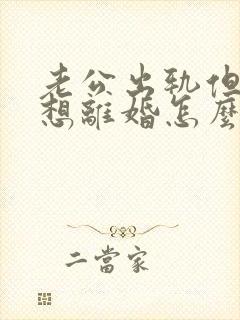 老公出軌但
想離婚怎麼
二當家